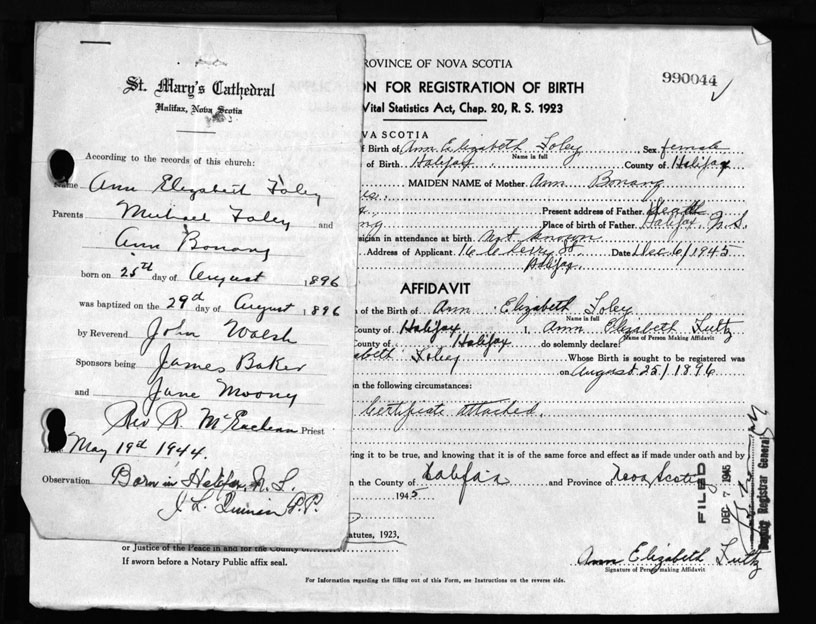 St. Mary's Cathedral
Halifax, Nova Scotia
According to the records of this church:
Name Ann Elizabeth Foley
Parents Michael Foley and
Ann Bonang
born on 25th day of August, 1896
was baptized on the 29th day of August, 1896
by Reverend John Walsh
Sponsors being James Baker
and Jane Moony
Rev R. McEachean Priest
May 19th 1944.
Observation Born in Halifax, N.S.
P.P.
ROVINCE OF NOVA SCOTIA
990044
ON FOR REGISTRATION OF BIRTH
Vital Statistics Act, Chap. 20, R. S. 1923
OVA SCOTIA
f Birth of Ann Elizabeth Foley Sex female
Name in full
of Birth Halifax County of Halifax
MAIDEN NAME of Mother Ann Bonang
Present address of Father Death
Place of birth of Father Halifax, N.S.
sician in attendance at birth Not known
Address of Applicant 16 St Date Dec 6/1945
Halifax
AFFIDAVIT
n of the Birth of Ann Elizabeth Foley
Name in full
County of Halifax I, Ann Elizabeth Fultz
Name of Person Making Affidavit
County of Halifax do solemnly declare
abeth Foley Whose Birth is sought to be registered was
on August 25/1896
n the following circumstances:
Certificate attached.
ving it to be true, and knowing that it is of the same force and effect as if made under oath and by
n the County of Halifax and Province of Nova Scotia
1945
FILED
DEC 7 1945
Deputy Registrar General
tatutes, 1923,
or Justice of the Peace in and for the County of
If sworn before a Notary Public affix seal.
Ann Elizabeth Fultz
Signature of Person making Affidavit
For Information regarding the filling out of this Form, see Instructions on the reverse side.